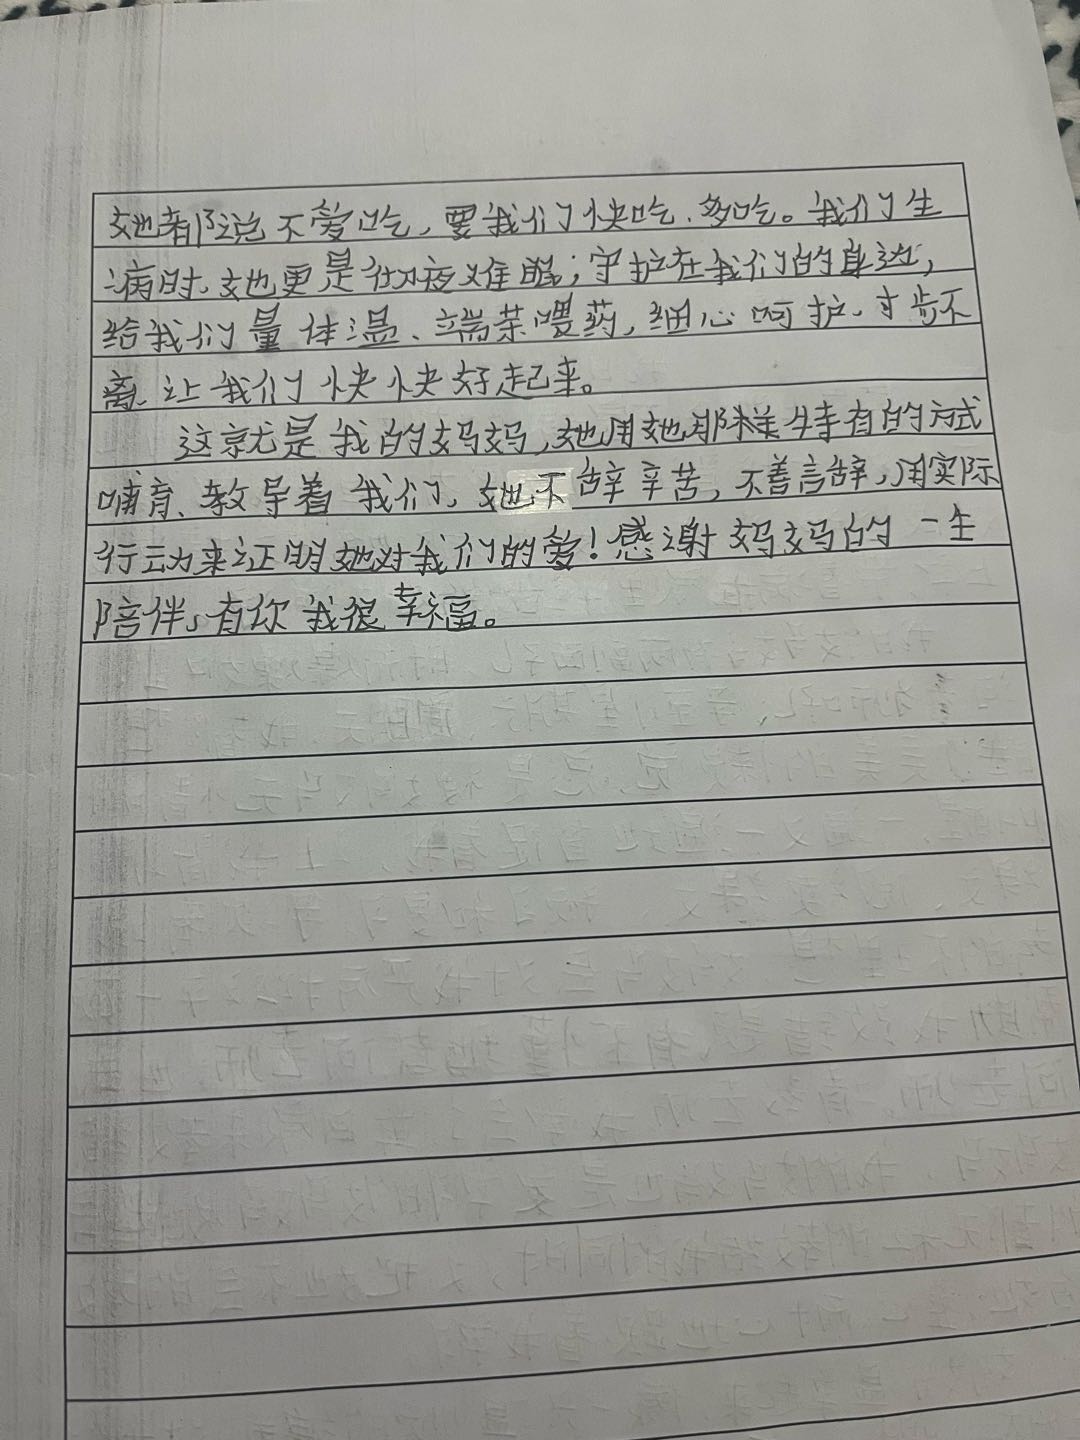 她都说不爱吃，要我们快吃、多吃。我们生
病时、她更是彻夜难眠；守护在我们的身边，
给我们量体温、端茶喂药，细心呵护、寸步不
离、让我们快快好起来。
这就是我的妈妈，她用她那样特有的方式
哺育、教导着我们、她不辞辛苦，不善言辞，用实际
行动来证明她对我们的爱！感谢妈妈的一生
陪伴，有你我很幸福。